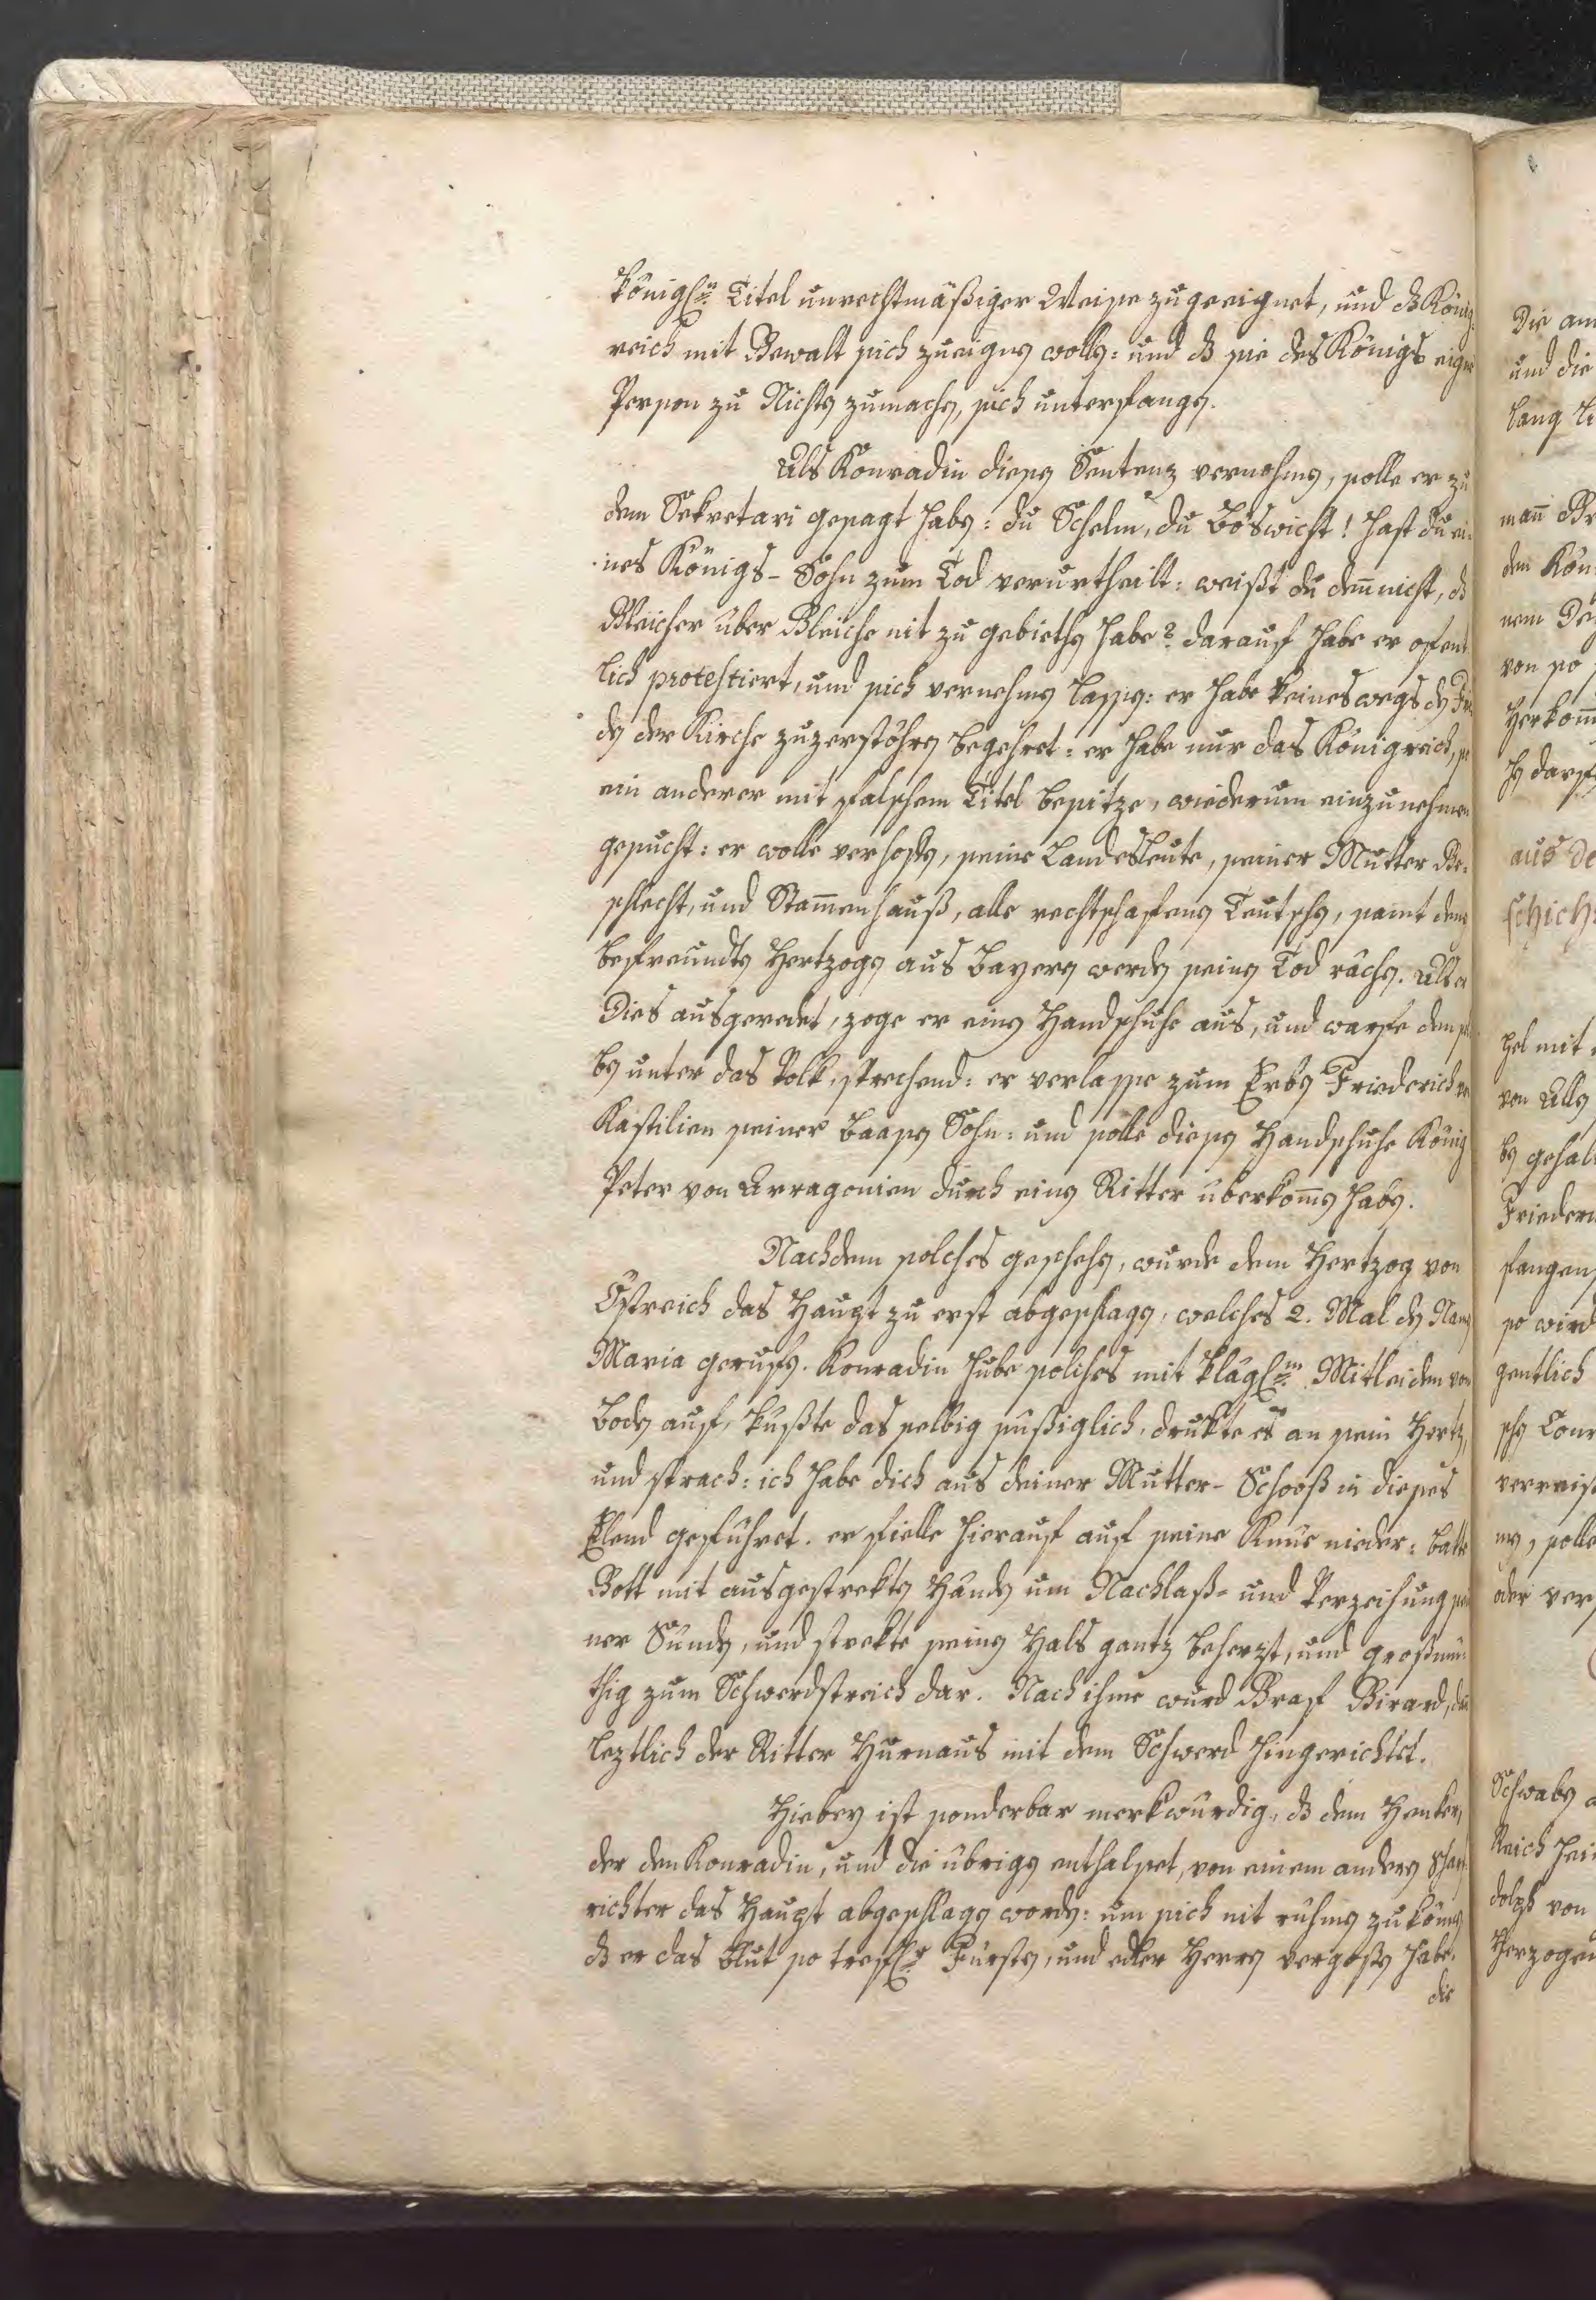 königl:n Titel unrechtmäßiger Weise zugeeignet, und dz König-
reich mit Gewalt sich zueignen wollen: und dz sie des Königs eigne
Person zu Nichts zumachen, sich unterfangen.
Als Konradin diesen Sentenz vernohmen, solle er zu
dem Sekretari gesagt haben: du Schelm, du Böswicht! hast du ei-
nes Königs-Sohn zum Tod verurtheilt: weißt du deñ nicht, dz
Gleicher über Gleiche nit zu gebiethen habe? darauf habe er ofent
lich protestiert, und sich vernehmen lassen: er habe keineswegs den Fri
den der Kirche zuzerstöhren begehret: er habe nur das Königreich, so
ein anderer mit falschem Titel besitze, wiederum einzunehmen
gesucht: er wolle verhoffen, seine Landesleute, seiner Mutter Ge-
schlecht, und Stam̃enhauß, alle rechtschafene Teutschen, samt denen
befreundten Hertzogen aus Bayern werden seinen Tod rächen. Als er
Dies ausgeredet, zoge er einen Handschuhe aus, und warfe densel
ben unter das Volk, sprechend: er verlasse zum Erben Friederich von
Kastilien seiner Baasen Sohn: und solle diesen Handschuhe König
Peter von Arragonien durch einen Ritter überkom̃en haben.
Nachdem solches geschehen, wurde dem Hertzog von
Östreich das Haupt zu erst abgeschlagen, welches 2. Mal den Namen
Maria gerufen. Konradin hube solches mit klägl:m Mitleiden von
Boden auf, kußte das selbig süßiglich, drukte es an sein Hertz,
und sprach: ich habe dich aus deiner Mutter-Schooß in dieses
Elend geführet. er fielle hierauf auf seine Knüe nieder: batte
Gott mit ausgestrekten Händen um Nachlaß- und Verzeihung sei
ner Sünden, und strekte seinen Hals gantz beherzt, und großmü-
thig zum Schwerdstreich dar. Nach ihme wurd Graf Girard, dan
leztlich der Ritter Hurnaus mit dem Schwerd hingerichtet.
Hiebey ist sonderbar merkwürdig, dz dem Henker,
der den Konradin, und die übrigen enthalset, von einem andern Scharf
richter das Haupt abgeschlagen worden: um sich nit rühmen zu könen
dz er das Blut so trefl:r Fürsten, und edler Herren vergossen habe.
die
Die an
und die
lang
mañ
den Kön
nem
von so
Herkom̃
aus de
schich
hel mit
von Allen
ben gehal
Friederi
fangen
so wird
gentlich
schen Conr
verreis
solle
oder ver
Schwaben
Reich
dolph von
Herzogen